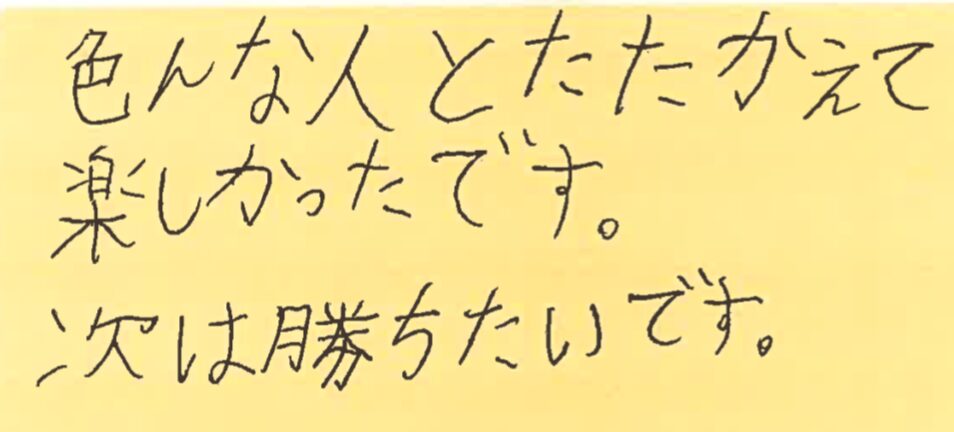 色んな人とたたかえて
楽しかったです。
次は勝ちたいです。